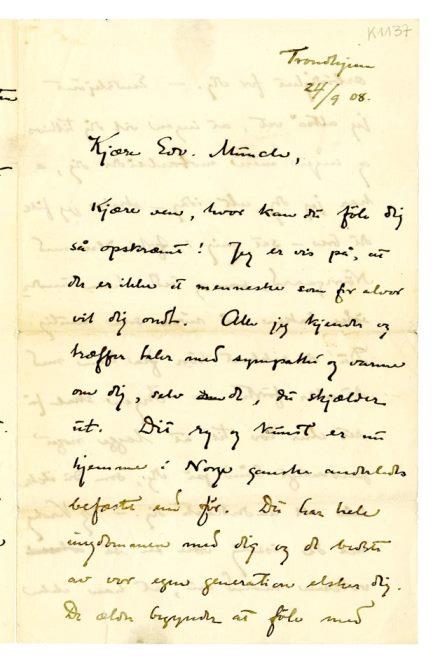 K1137
Trondhjem
24/9 08.
Kjære Edv. Munch,
Kjære ven, hvor kan du føle dig
så opskræmt! Jeg er vis på, at
der er ikke et menneske som for alvor
vil dig ondt. Alle jeg kjender og
træffer taler med sympathi og varme
om dig, selv de, du skjælder
ut. Dit ry og kunst er nu
hjemme i Norge ganske anderledes
befæstet end før. Du har hele
ungdommen med dig og de bedste
av vor egen generation elsker dig.
De ældre begynder at føle med